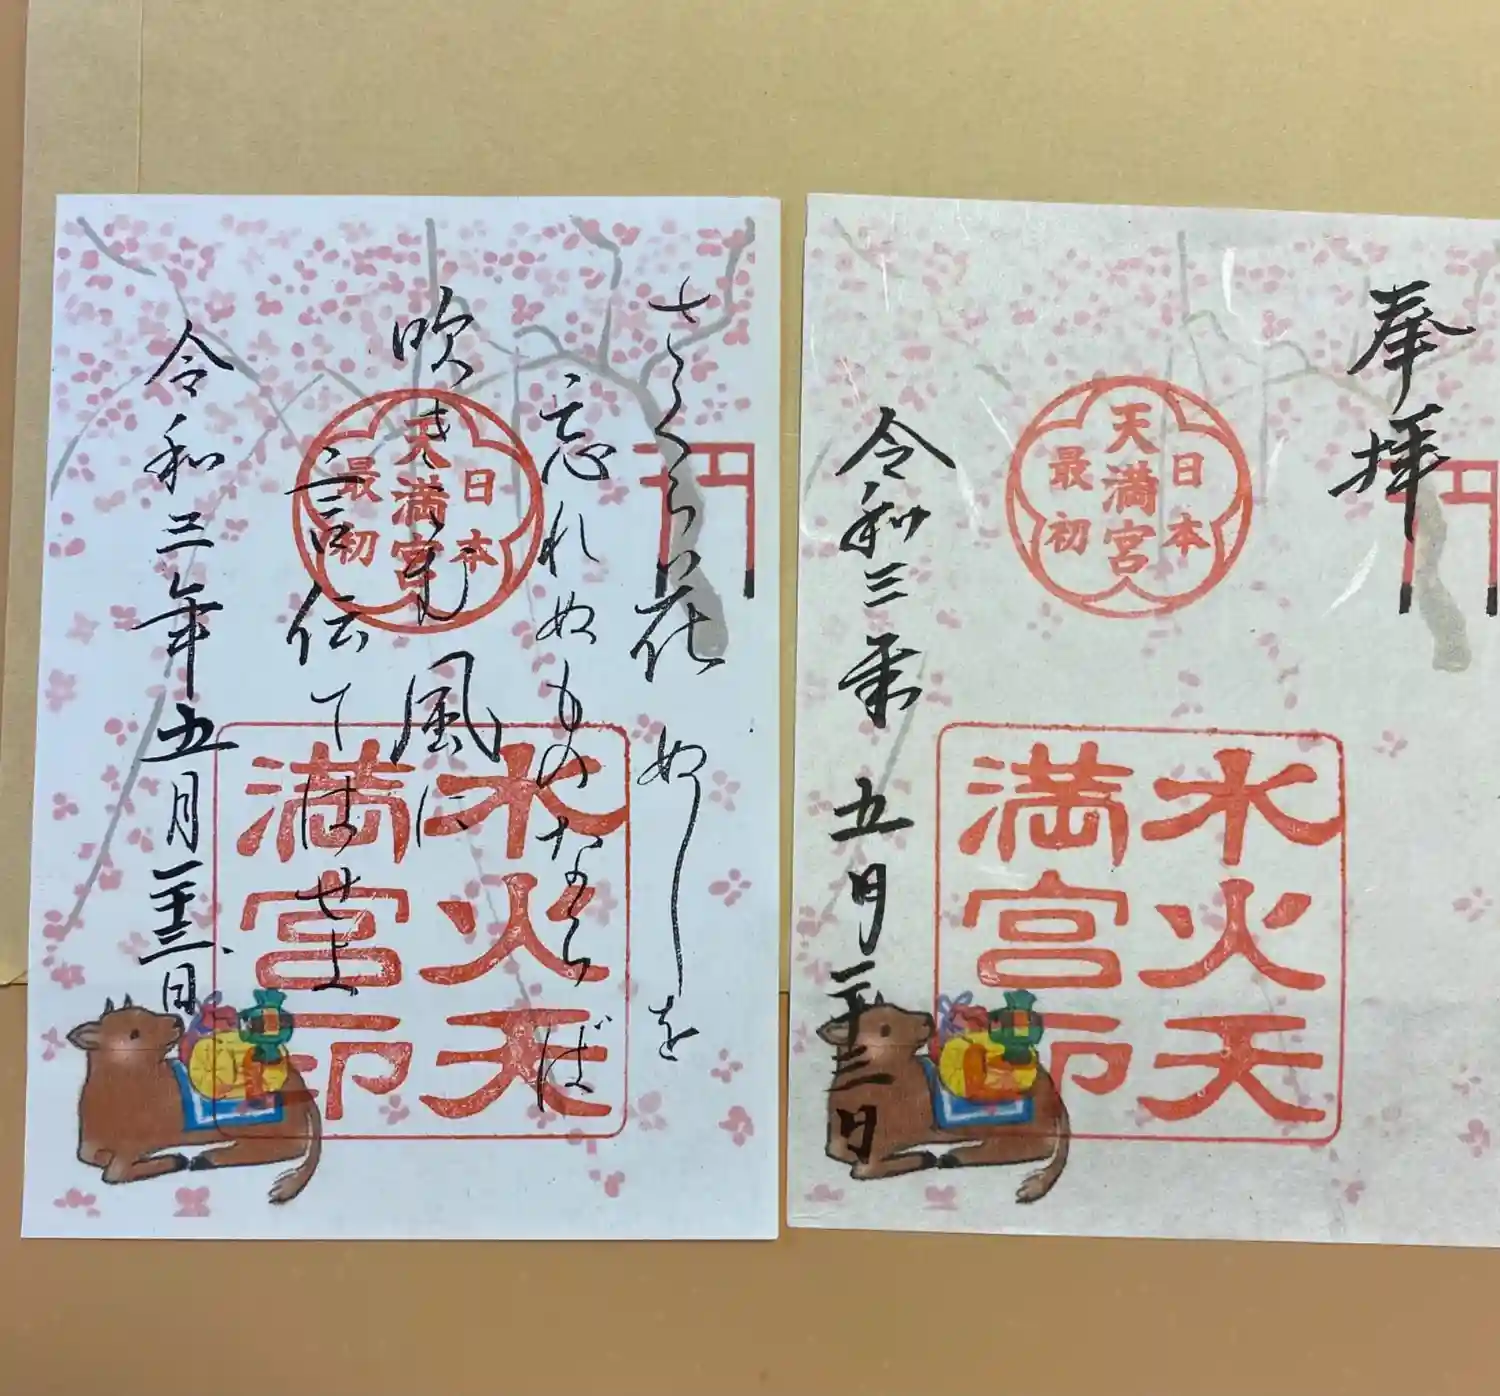 さくら花 ぬしを
忘れぬものならば
吹きこむ風に
言伝てはせよ
令和三年五月二十三日
日本
天満宮
最初
水火天
満宮印
奉拝
令和三年 五月二十三日
日本
天満宮
最初
水火天
満宮印